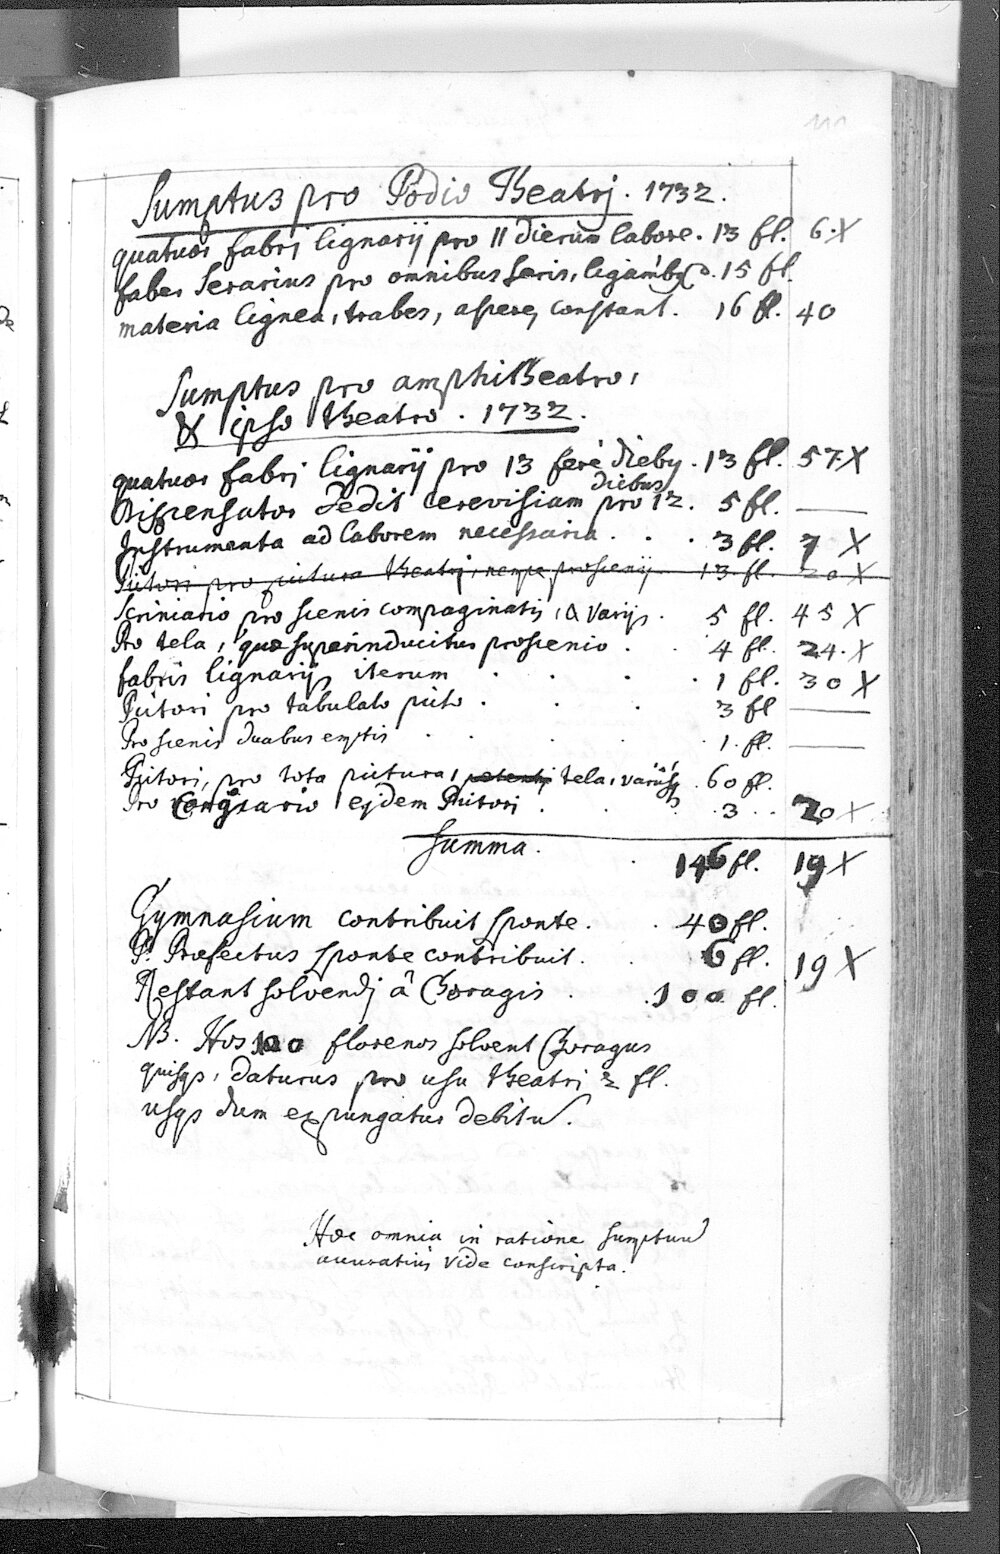 Sumptus pro Podio Theatrj. 1732.
quatuor fabrj lignarÿ pro 11 dierum labore. 13 fl. 6. X
faber Serarius pro omnibus seris, 15 fl.
materia lignea, trabes, asseres constant. 16 fl. 40
Sumptus pro amphitheatro,
& ipso theatro. 1732.
quatuor fabrj lignarÿ pro 13 ferè dieby. 13 fl. 57. X
diebus
Dispensator dedit cerevisiam pro 12. 5 fl. —
Instrumenta ad laborem necessaria . . . 3 fl. 7 X
Pictori pro pictura theatrj, nempe proscenÿ 13 fl. 20 X
Scriniario pro scenis compaginatis, & varÿs. 5 fl. 45 X
Pro tela, quæ superinducitur proscenio . . 4 fl. 24. X
fabris lignarÿs iterum . . . . 1 fl. 30 X
Pictori pro tabulato picto . . . 3 fl —
Pro scenis duabus emptis . . . . . 1. fl. —
Pictori, pro tota pictura, tela, varÿsq; . 60 fl.
Pro Congiario ejdem Pictori . . . 3 . . 20 X
Summa. . 146 fl. 19 X
Gymnasium contribuit sponte. . 40 fl.
P. Præfectus sponte contribuit. . 6 fl. 19 X
Restant solvendj â Choragis . . 100 fl.
NB. Hos 100 florenos solvent Choragus
quisqs, daturus pro usu theatri 2 fl.
usqs dum expungatur debitū.
Hæc omnia in ratione sumptuū
accuratiùs vide conscripta.